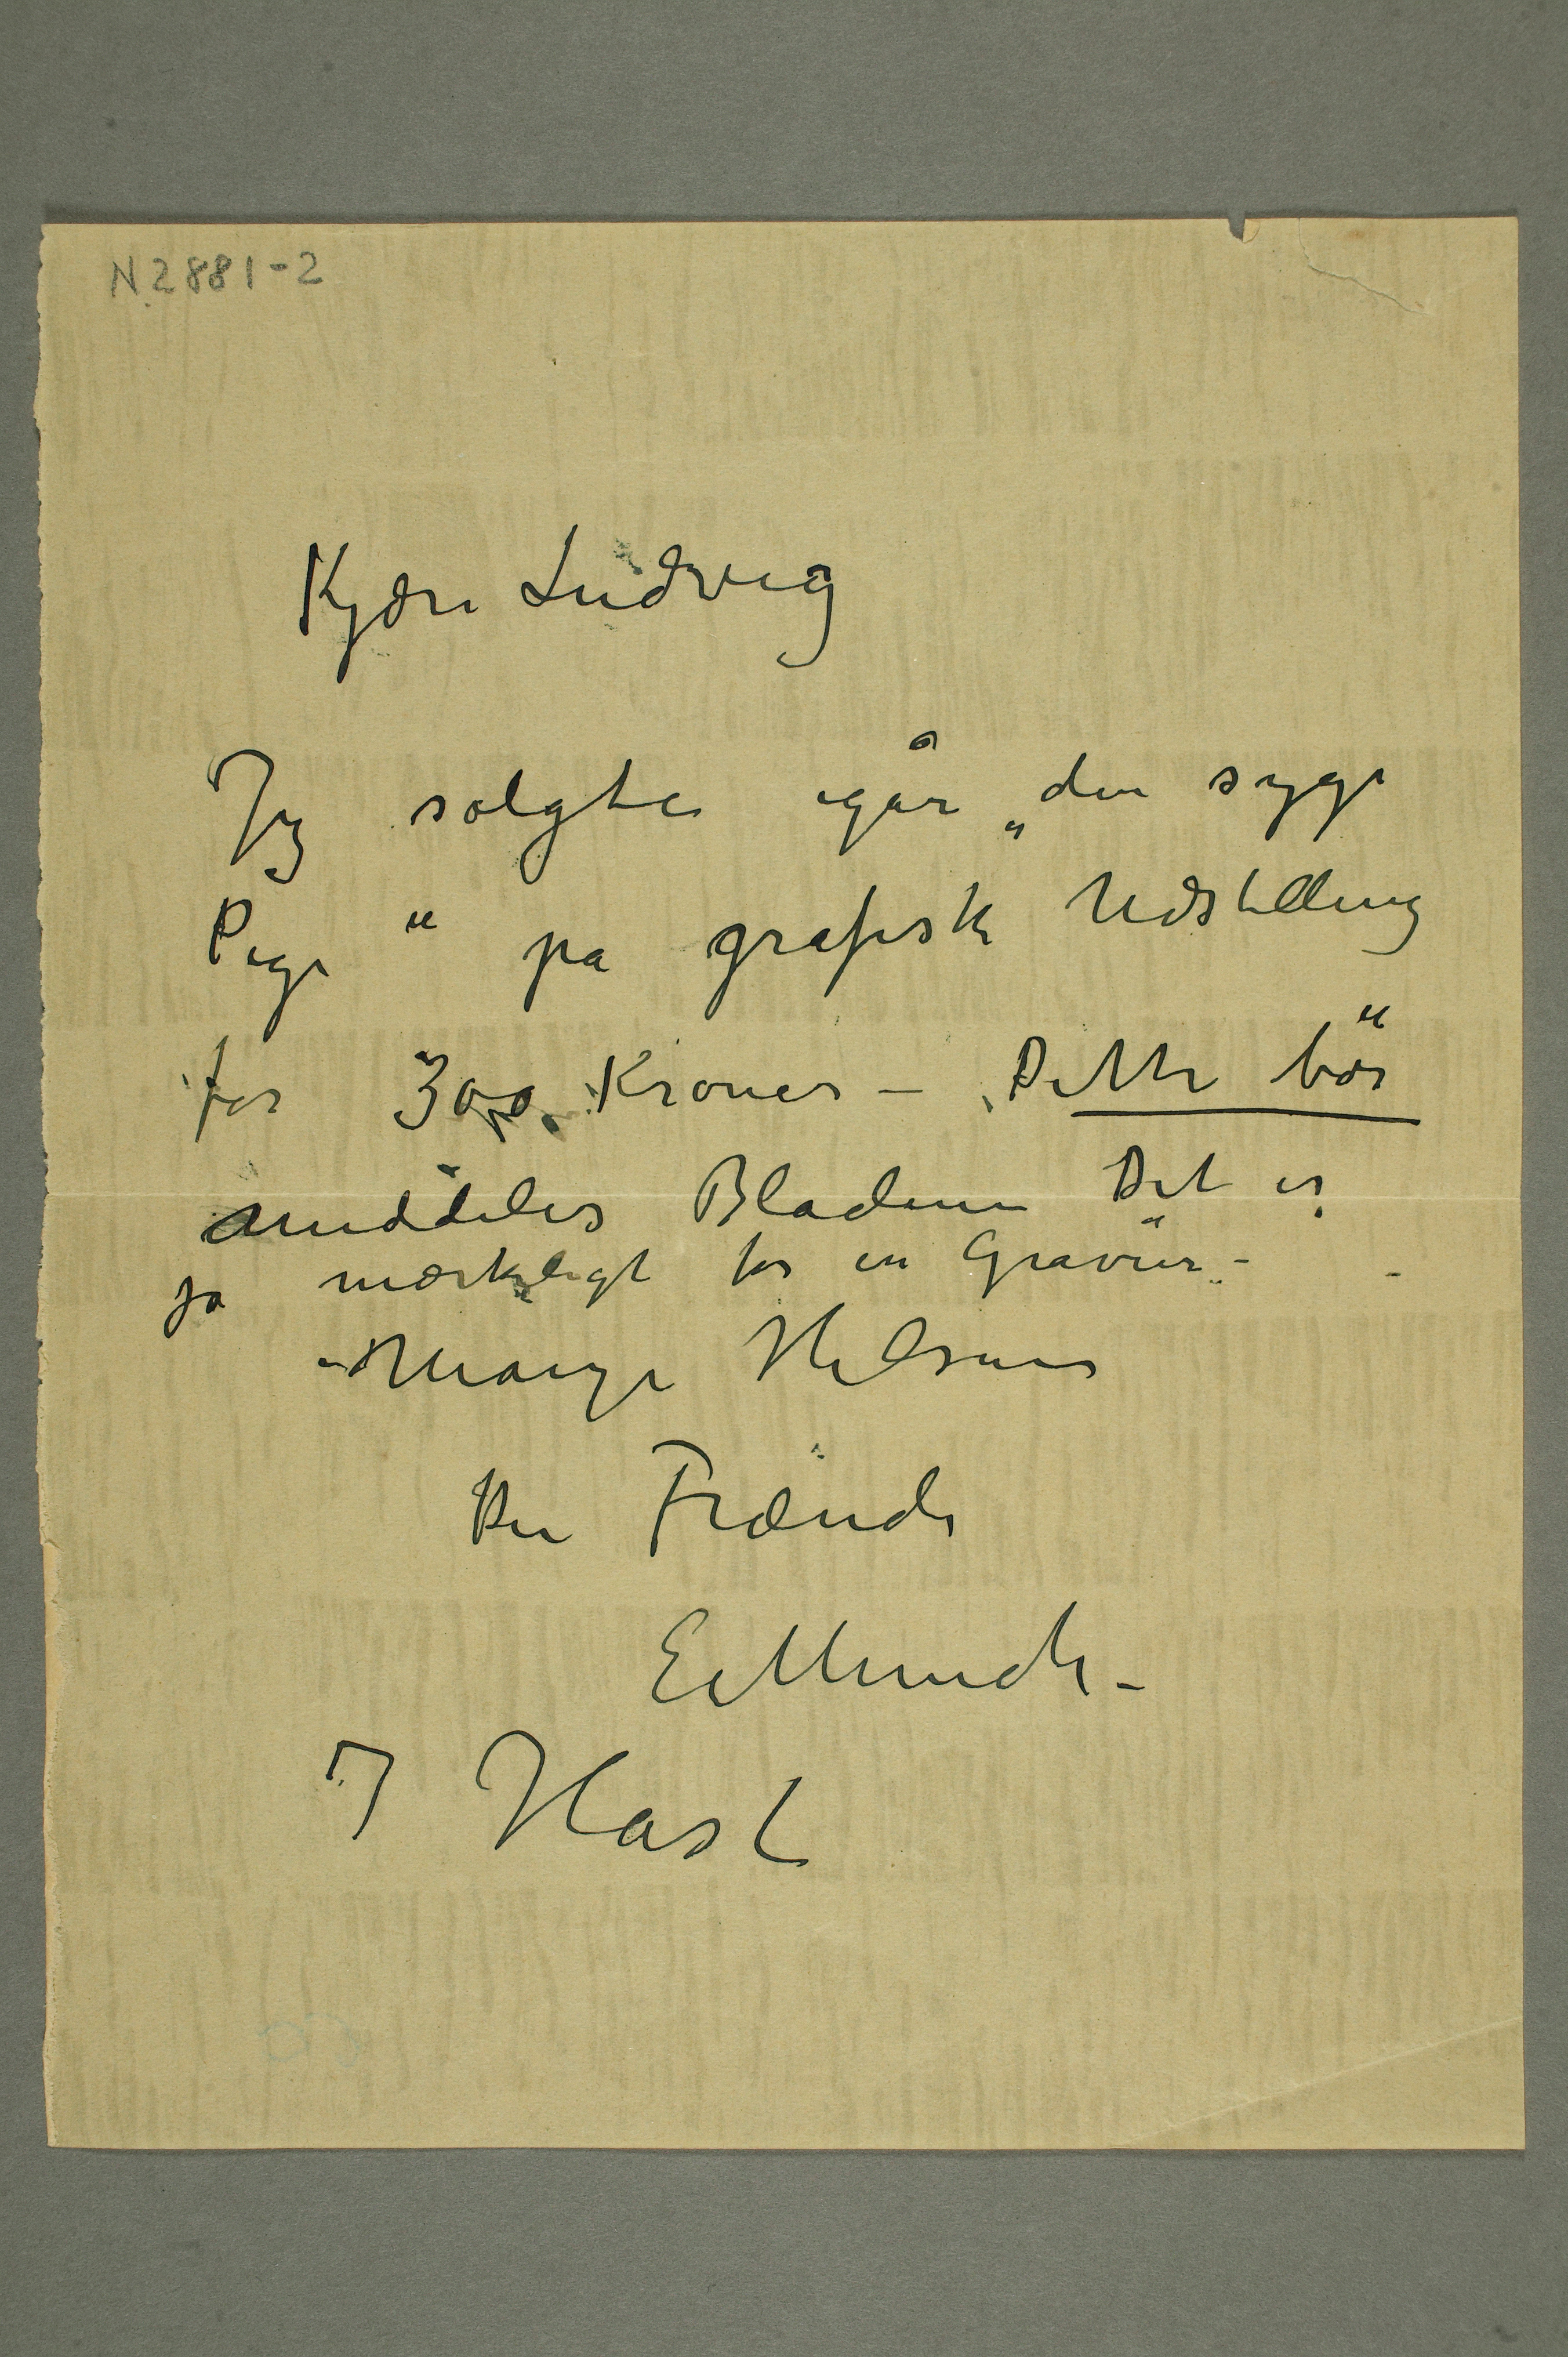 N 2881-2
Kjære Ludvig
Jeg solgte igår „den syge
Pige“ pa grafisk Udstilling
for 300 Kroner – Dette bör
meddeles Bladene Det er
jo mærkeligt for en Gravür –
– Mange Hilsener
Din Frænde
E Munch –
I Hast